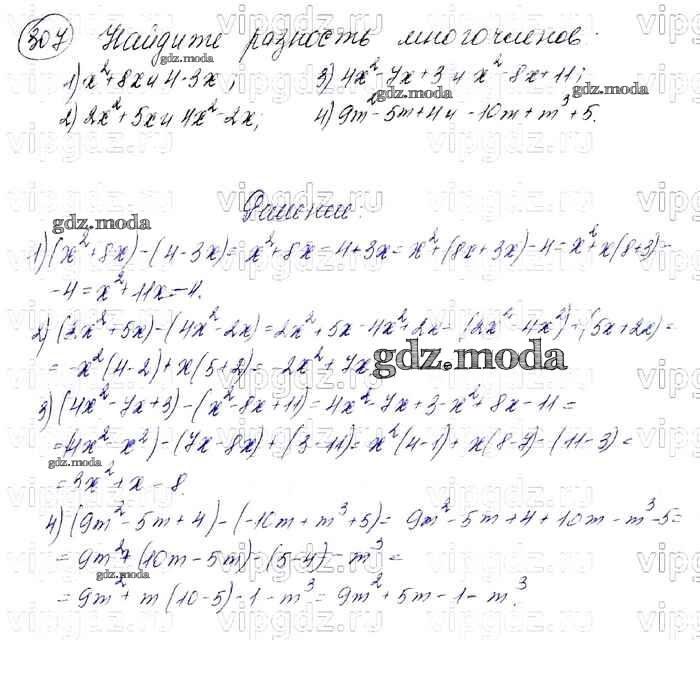 307 Найдите разность многочленов.
1) x²+8x и 4-3x; 3) 4x²-7x+3 и x²-8x+11;
2) 2x²+5x и 4x²-2x; 4) 9m²-5m+4 и -10m+m³+5.
Решение:
1) (x²+8x)-(4-3x)= x²+8x=4+3x= x²+(8x+3x)-4= x²+x(8+3)-
-4= x²+11x-4.
2) (2x²+5x)-(4x²-2x)=2x²+5x-4x²+2x=(2x²-4x²)+(5x+2x)=
= -x²(4-2)+x(5+2)= -2x²+7x
3) (4x²-7x+3)-(x²-8x+11)=4x²-7x+3-x²+8x-11=
=(4x²-x²)-(7x-8x)+(3-11)=x²(4-1)+x(8-7)-(11-3)=
=3x²+x-8.
4) (9m²-5m+4)-(-10m+m³+5)= 9m²-5m+4+10m-m³-5=
= 9m²+(10m-5m)-(5-4)-m³=
= 9m²+m(10-5)-1-m³= 9m²+5m-1-m³.
gdz.moda
gdz.moda
gdz.moda
gdz.moda
gdz.moda
gdz.moda
gdz.moda
vipgdz.ru